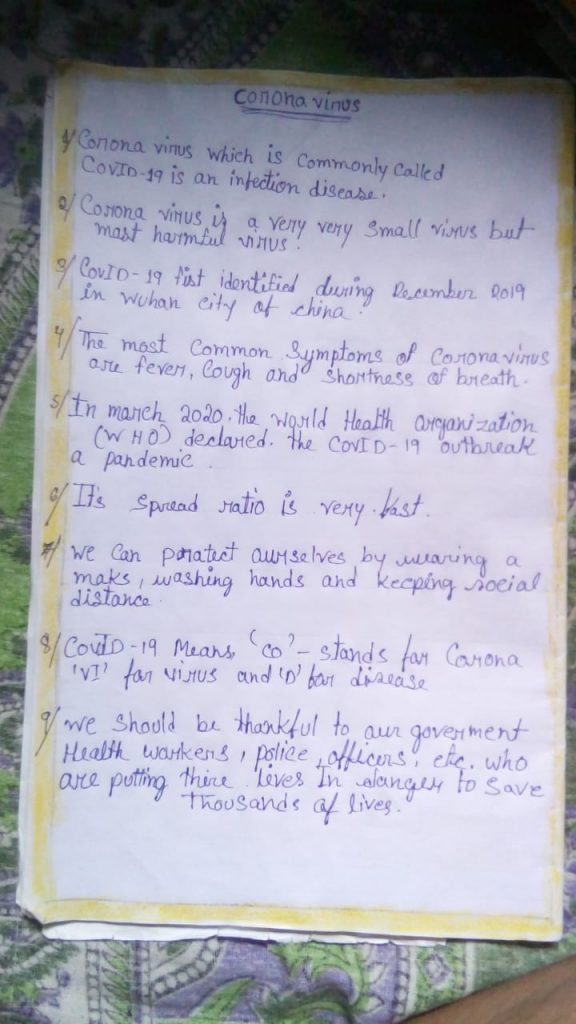 Corona virus
1/ Corona virus which is Commonly Called
CoVID-19 is an infection disease.
2/ Corona virus is a very very Small virus but
most harmful virus.
3/ CovID-19 fist identified during December 2019
in wuhan city of china.
4/ The most Common Symptoms of Corona virus
are fever, Cough and Shortness of breath.
5/ In march 2020. the World Health organization
(WHO) declared. the CoVID-19 outbreak
a pandemic.
6/ It's Spread ratio is very fast.
7/ we Can poratect ourselves by wearing a
maks, washing hands and keeping social
distance.
8/ CovID-19 Means, 'CO' - stands for Corona
'VI' for virus and 'D' for disease
9/ we Should be thankful to our goverment
Health workers, police, officers, etc. who
are putting thire lives In danger to Save
Thousands of lives.